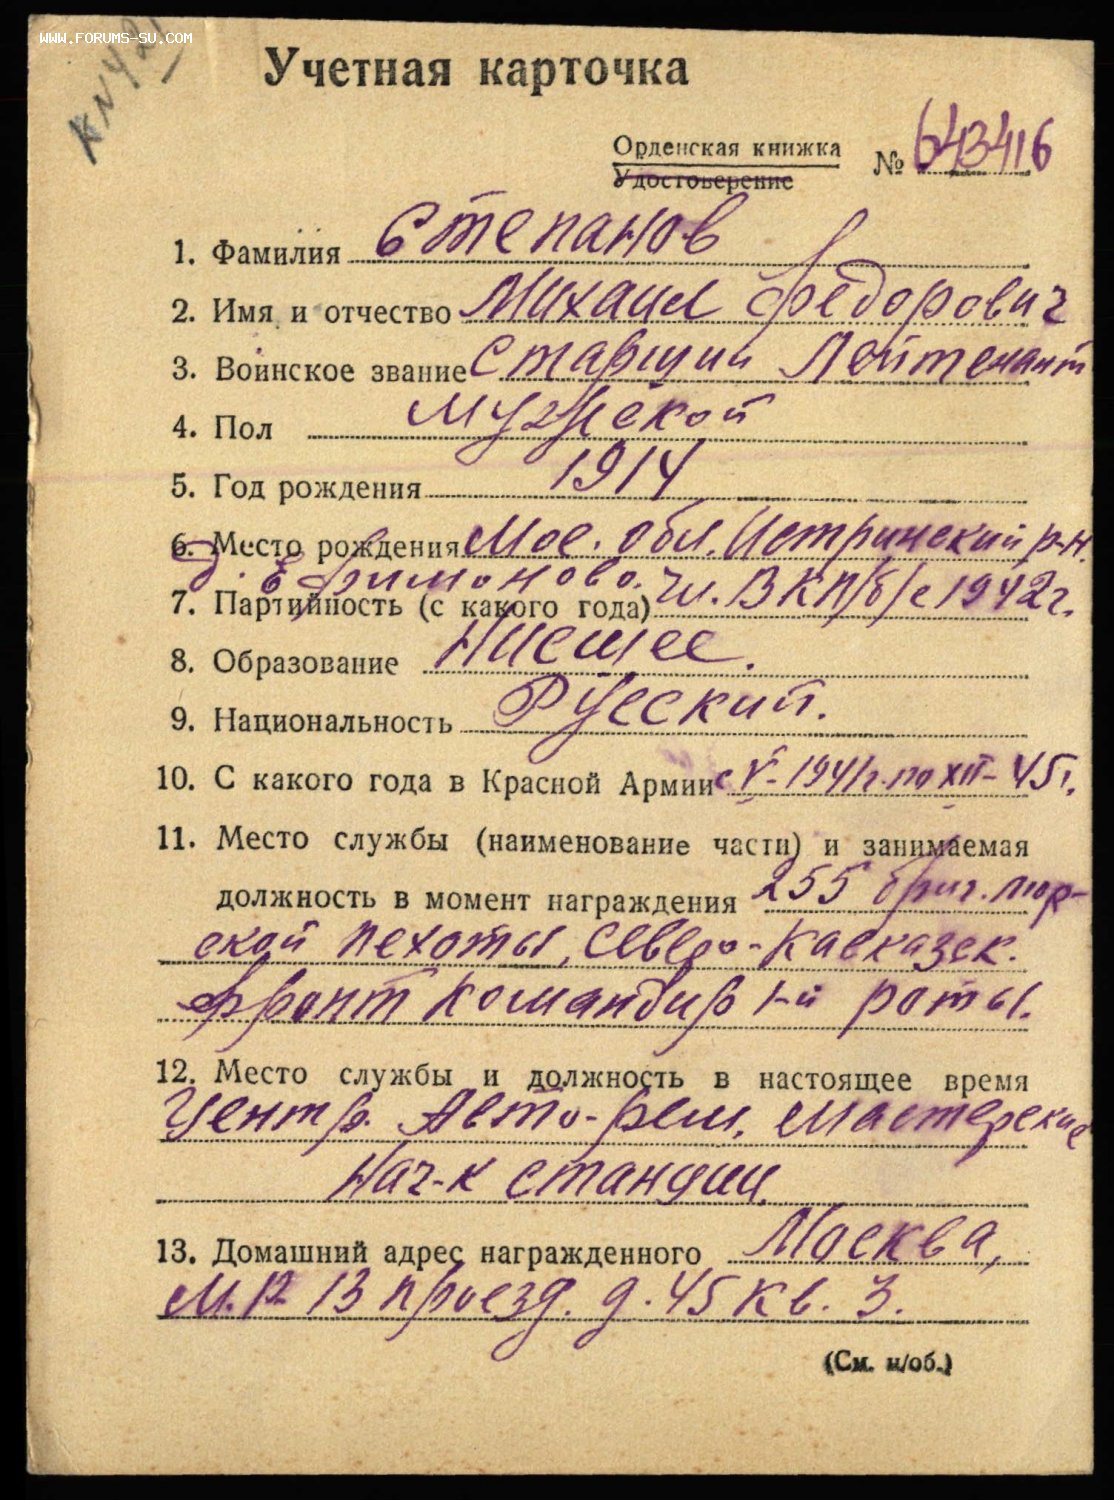 WWW.FORUMS-SU.COM
Учетная карточка
Орденская книжка
Удостоверение
№ 643416
1. Фамилия Степанов
2. Имя и отчество Михаил Федорович
3. Воинское звание Старший Лейтенант
4. Пол мужской
5. Год рождения 1914
6. Место рождения Мос. обл. Истринский р-н.
д. Ефимоново.
7. Партийность (с какого года) чл. ВКП/б/ с 1942 г.
8. Образование Низшее.
9. Национальность Русский.
10. С какого года в Красной Армии с V-1941 г. по XII-45 г.
11. Место службы (наименование части) и занимаемая
должность в момент награждения 255 бриг. мор-
ской пехоты, Северо-Кавказск.
фронт командир 1-й роты.
12. Место службы и должность в настоящее время
Центр. Авто-рем. мастерские
Нач-к станции.
13. Домашний адрес награжденного Москва,
М.Р. 13 проезд. д. 45 кв. 3.
(См. н/об.)